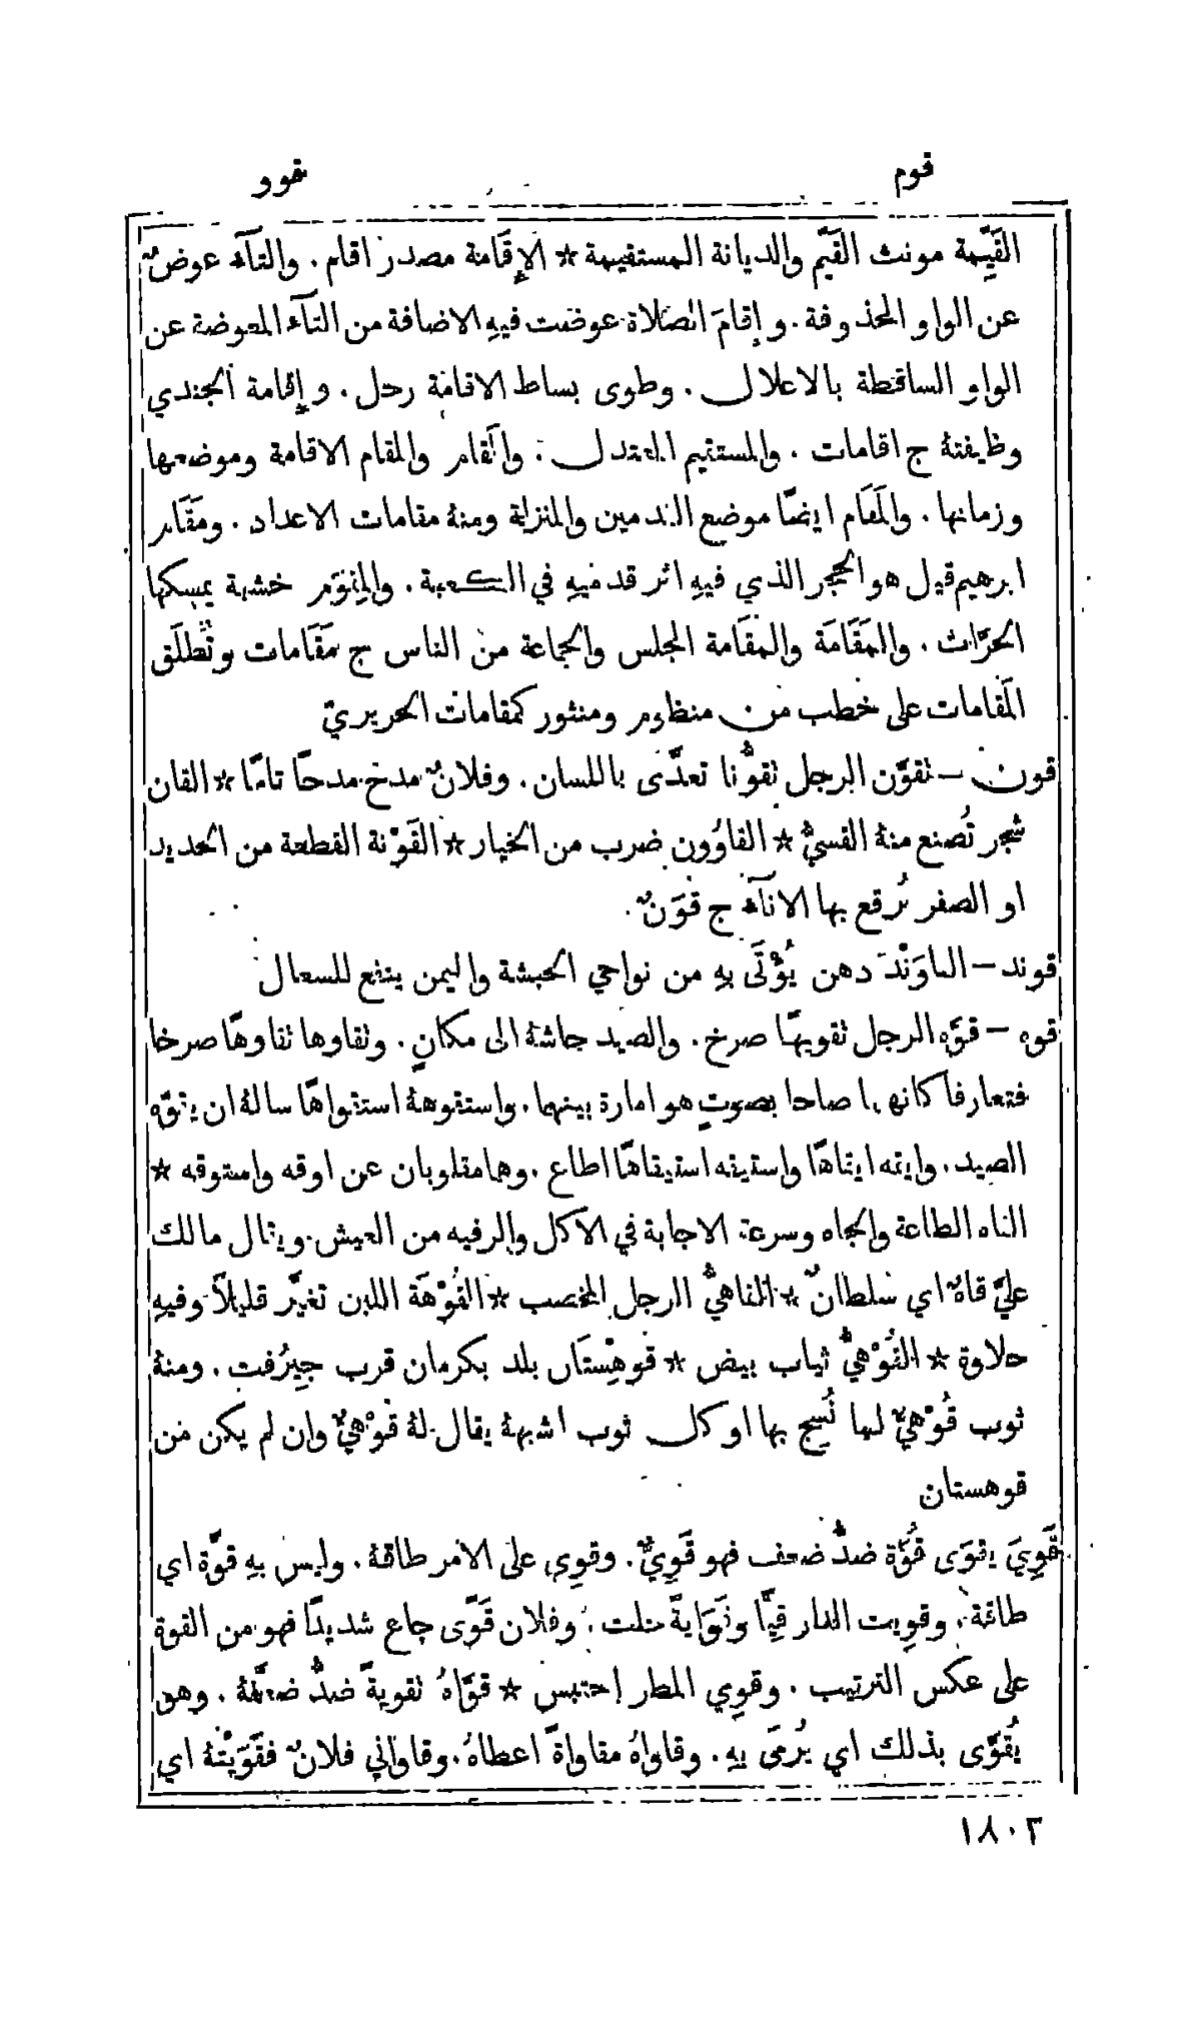 قوم
قوو
القَيِّمة مونث القَيِّم والديانة المستقيمة * الإِقَامة مصدر اقام . والتآء عوضٌ
عن الواو المحذوفة . وإقامَ الصلاة عوضت فيهِ الاضافة من التآء المعوضة عن
الواو الساقطة بالاعلال . وطوى بساط الاقامة رحل . وإقامة الجندي
وظيفتهُ ج اقامات . والمستقيم المعتدل . والقَام والمقام الاقامة وموضعها
وزمانها . والمَقَام ايضًا موضع القدمين والمنزلة ومنهُ مقامات الاعداد . ومَقَام
ابرهيم قيل هو الحجر الذي فيهِ اثر قدميهِ في الكعبة . والمِقوَم خشبة يمسكها
الحرَّاث . والمَقَامَة والمقَامة المجلس والجماعة من الناس ج مَقَامات وتُطلَق
المَقامات على خطب من منظوم ومنثور كمقامات الحريريّ
قون – تقوَّن الرجل تقوُّنا تعدَّى باللسان . وفلانٌ مدح مدحًا تامًا * القان
شجر تُصنع منهُ القسيُّ * القاوُون ضرب من الخيار * القَوْنة القطعة من الحديد
او الصفر يُرقع بها الانآء ج قوَنٌ .
قوند – القاوَنْد دهن يُؤْتَى بهِ من نواحي الحبشة واليمن ينفع للسعال
قوه – قوَّه الرجل تقويهًا صرخ . والصيد حاشهُ الى مكانٍ . وتقاوها تقاوهًا صرخا
فتعارفا كانهما صاحا بصوتٍ هو امارة بينهما . واستقوههُ استقواهًا سالهُ ان يقوّه
الصيد . وايقه ايقاهًا واستيقه استيقاهًا اطاع . وهما مقلوبان عن اوقه واستوقه *
القاه الطاعة والجاه وسرعة الاجابة في الاكل والرفيه من العيش . ويقال مالك
عليَّ قاهٌ اي سلطانٌ * القاهيُّ الرجل المخصب * القُوْهَة اللبن تغيَّر قليلاً وفيهِ
حلاوة * القُوْهيُّ ثياب بيض * قوهِسْتَان بلد بكرمان قرب جِيرُفت . ومنهُ
ثوب قُوْهيٌّ لما نُسِج بها او كل ثوب اشبههُ يقال لهُ قوْهيٌّ وان لم يكن من
قوهستان
قَوِيَ يقوَى قُوَّة ضدُّ ضعف فهو قَوِيٌّ . وقوِي على الامر طاقهُ . وليس بهِ قوَّة اي
طاقة . وقويت الدار قيًّا وقَوَايةً خلت . وفلان قَوًى جاع شديدًا فهو من القوة
على عكس الترتيب . وقوِي المطر إحتبس * قوَّاهُ تقويةً ضدُّ ضعَّفهُ . وهو
يُقوَّى بذلك اي يُرمَى بهِ . وقاواهُ مقاواةً اعطاهُ . وقاواني فلانٌ فقَوَيْتهُ اي
١٨٠٢